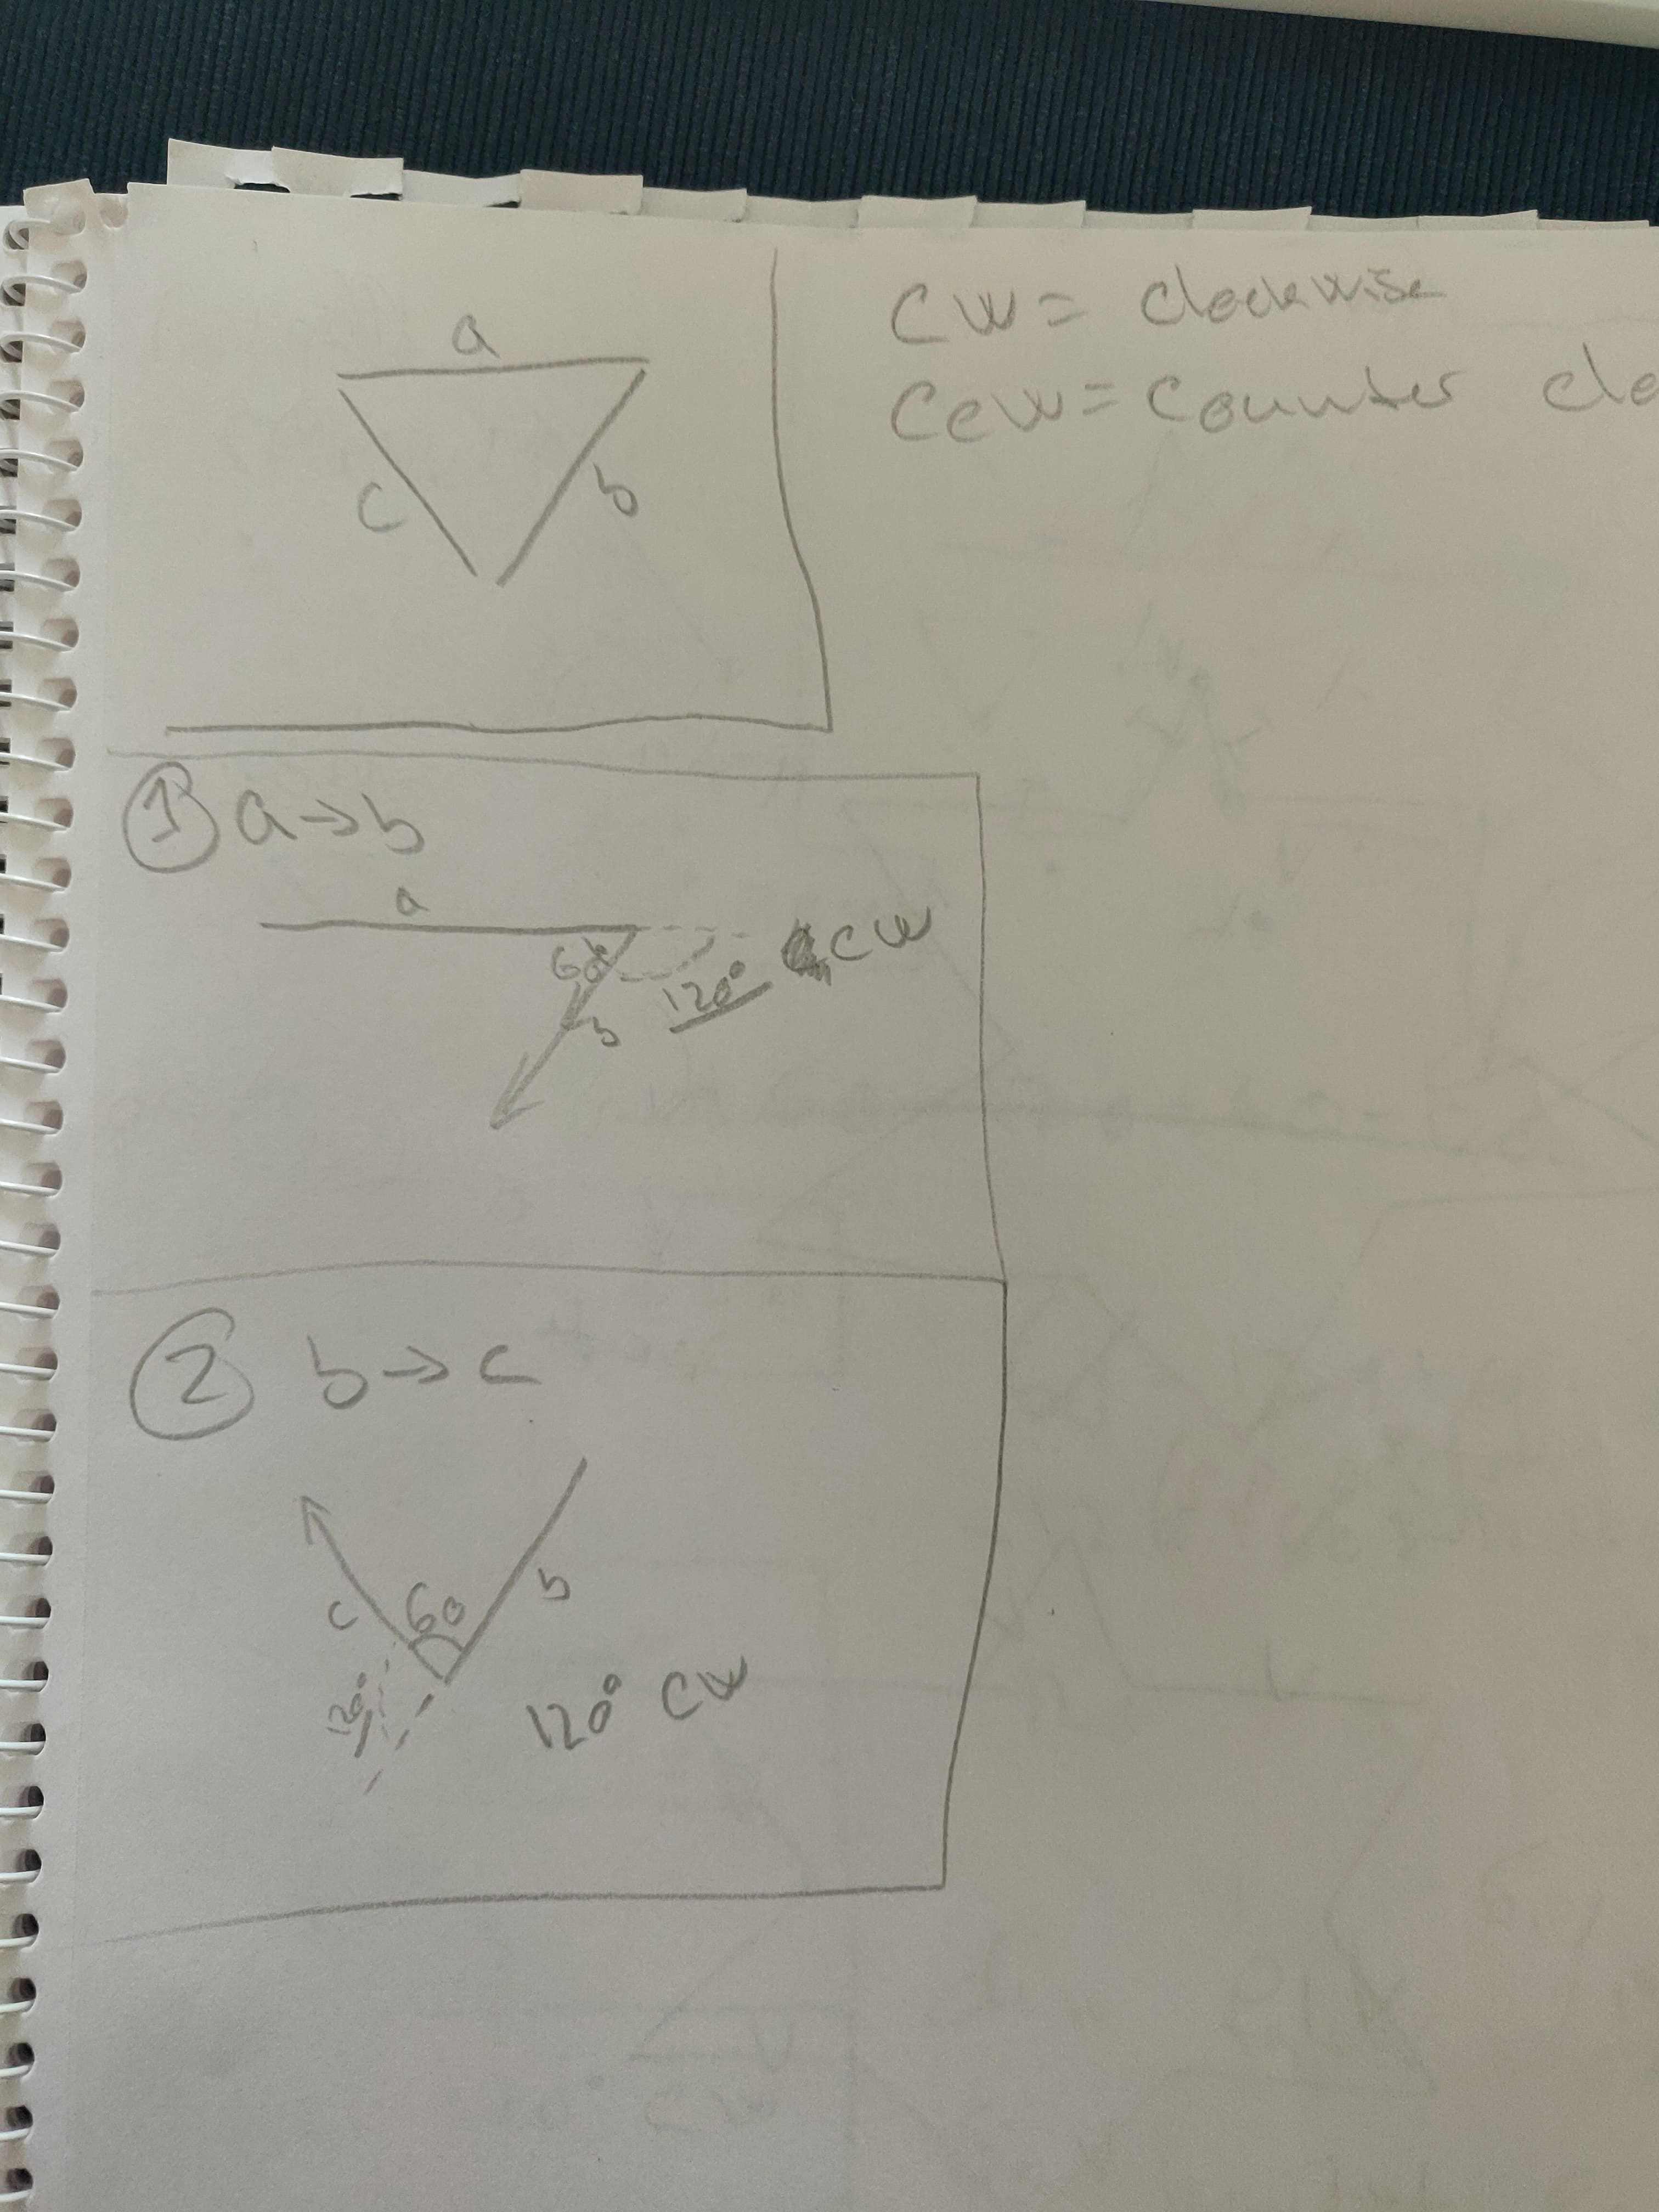 a
c
b
CW = clockwise
CCW = counter
① a → b
a
60
b
120° CW
② b → c
c
60
b
120°
120° CW